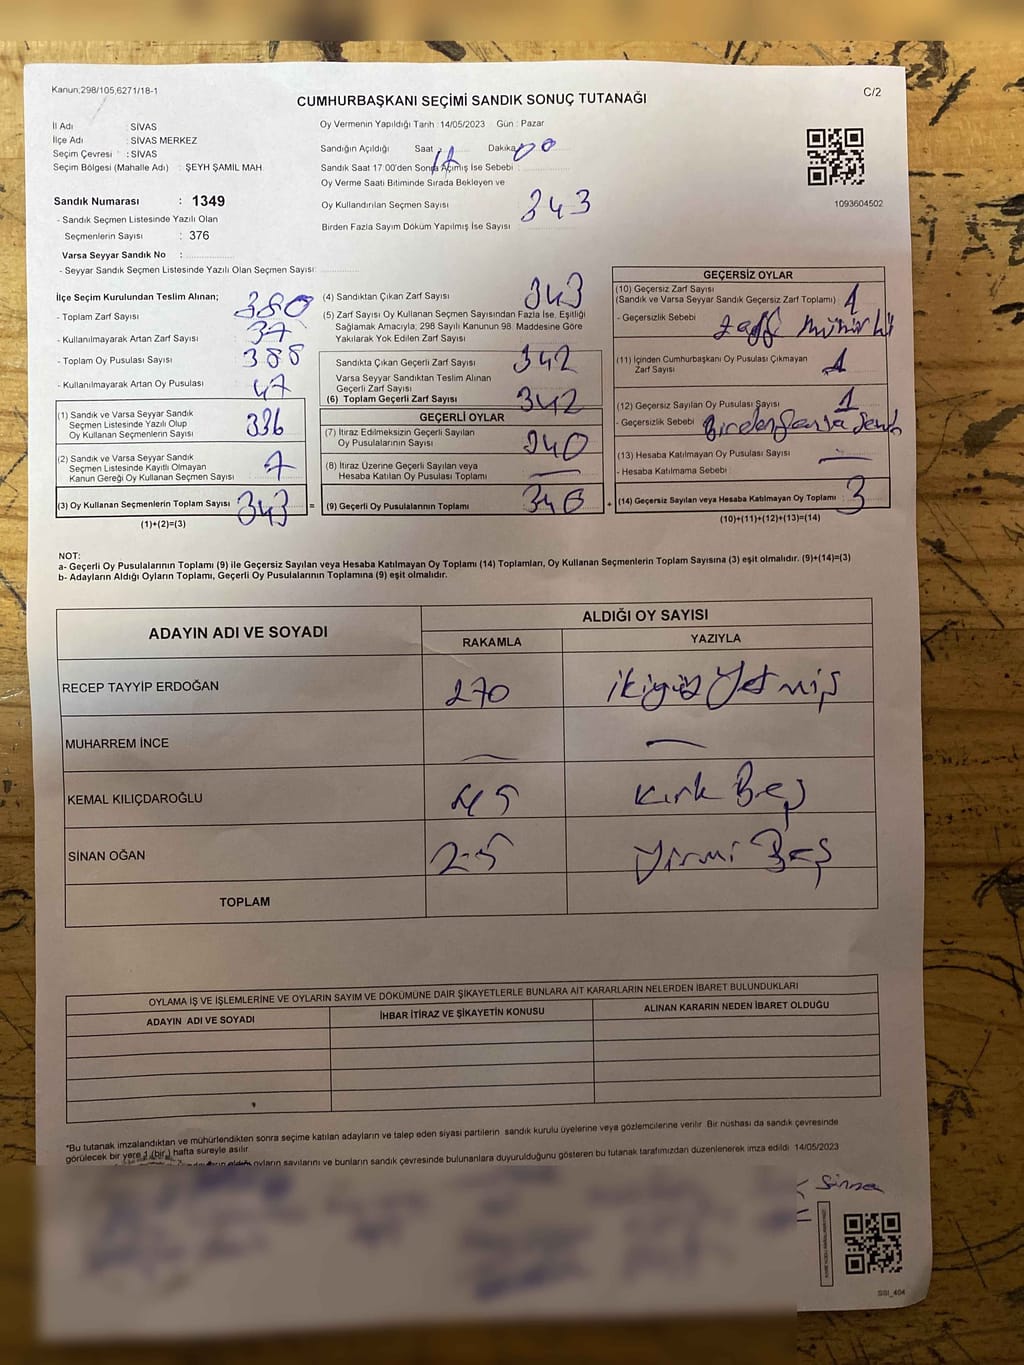 Kanun;298/105,6271/18-1
C/2
CUMHURBAŞKANI SEÇİMİ SANDIK SONUÇ TUTANAĞI
İl Adı : SİVAS
İlçe Adı : SİVAS MERKEZ
Seçim Çevresi : SİVAS
Seçim Bölgesi (Mahalle Adı) : ŞEYH ŞAMİL MAH
Oy Vermenin Yapıldığı Tarih : 14/05/2023 Gün : Pazar
Sandığın Açıldığı Saat : 17 Dakika 00
Sandık Saat 17:00'den Sonra Açılmış İse Sebebi :
Oy Verme Saati Bitiminde Sırada Bekleyen ve
Oy Kullandırılan Seçmen Sayısı 343
Birden Fazla Sayım Döküm Yapılmış İse Sayısı
1093604502
Sandık Numarası : 1349
- Sandık Seçmen Listesinde Yazılı Olan
Seçmenlerin Sayısı : 376
Varsa Seyyar Sandık No :
- Seyyar Sandık Seçmen Listesinde Yazılı Olan Seçmen Sayısı:
İlçe Seçim Kurulundan Teslim Alınan;
- Toplam Zarf Sayısı 380
- Kullanılmayarak Artan Zarf Sayısı 37
- Toplam Oy Pusulası Sayısı 388
- Kullanılmayarak Artan Oy Pusulası 47
(1) Sandık ve Varsa Seyyar Sandık
Seçmen Listesinde Yazılı Olup
Oy Kullanan Seçmenlerin Sayısı 336
(2) Sandık ve Varsa Seyyar Sandık
Seçmen Listesinde Kayıtlı Olmayan
Kanun Gereği Oy Kullanan Seçmen Sayısı 7
(3) Oy Kullanan Seçmenlerin Toplam Sayısı 343 =
(1)+(2)=(3)
(4) Sandıktan Çıkan Zarf Sayısı 343
(5) Zarf Sayısı Oy Kullanan Seçmen Sayısından Fazla İse, Eşitliği
Sağlamak Amacıyla; 298 Sayılı Kanunun 98. Maddesine Göre
Yakılarak Yok Edilen Zarf Sayısı
Sandıkta Çıkan Geçerli Zarf Sayısı 342
Varsa Seyyar Sandıktan Teslim Alınan
Geçerli Zarf Sayısı
(6) Toplam Geçerli Zarf Sayısı 342
GEÇERLİ OYLAR
(7) İtiraz Edilmeksizin Geçerli Sayılan
Oy Pusulalarının Sayısı 340
(8) İtiraz Üzerine Geçerli Sayılan veya
Hesaba Katılan Oy Pusulası Toplamı —
(9) Geçerli Oy Pusulalarının Toplamı 340 +
GEÇERSİZ OYLAR
(10) Geçersiz Zarf Sayısı
(Sandık ve Varsa Seyyar Sandık Geçersiz Zarf Toplamı) 1
- Geçersizlik Sebebi Zarf Mühürlü
(11) İçinden Cumhurbaşkanı Oy Pusulası Çıkmayan
Zarf Sayısı 1
(12) Geçersiz Sayılan Oy Pusulası Sayısı 1
- Geçersizlik Sebebi Birden fazla
(13) Hesaba Katılmayan Oy Pusulası Sayısı —
- Hesaba Katılmama Sebebi
(14) Geçersiz Sayılan veya Hesaba Katılmayan Oy Toplamı 3
(10)+(11)+(12)+(13)=(14)
NOT:
a- Geçerli Oy Pusulalarının Toplamı (9) ile Geçersiz Sayılan veya Hesaba Katılmayan Oy Toplamı (14) Toplamları, Oy Kullanan Seçmenlerin Toplam Sayısına (3) eşit olmalıdır. (9)+(14)=(3)
b- Adayların Aldığı Oyların Toplamı, Geçerli Oy Pusulalarının Toplamına (9) eşit olmalıdır.
ADAYIN ADI VE SOYADI
ALDIĞI OY SAYISI
RAKAMLA YAZIYLA
RECEP TAYYİP ERDOĞAN 270 ikiyüz Yetmiş
MUHARREM İNCE — —
KEMAL KILIÇDAROĞLU 45 Kırk Beş
SİNAN OĞAN 25 Yirmi Beş
TOPLAM
OYLAMA İŞ VE İŞLEMLERİNE VE OYLARIN SAYIM VE DÖKÜMÜNE DAİR ŞİKAYETLERLE BUNLARA AİT KARARLARIN NELERDEN İBARET BULUNDUKLARI
ADAYIN ADI VE SOYADI İHBAR İTİRAZ VE ŞİKAYETİN KONUSU ALINAN KARARIN NEDEN İBARET OLDUĞU
*Bu tutanak imzalandıktan ve mühürlendikten sonra seçime katılan adayların ve talep eden siyasi partilerin sandık kurulu üyelerine veya gözlemcilerine verilir. Bir nüshası da sandık çevresinde
görülecek bir yere 1 (bir) hafta süreyle asılır.
oyların sayılarını ve bunların sandık çevresinde bulunanlara duyurulduğunu gösteren bu tutanak tarafımızdan düzenlenerek imza edildi. 14/05/2023
SSI_404